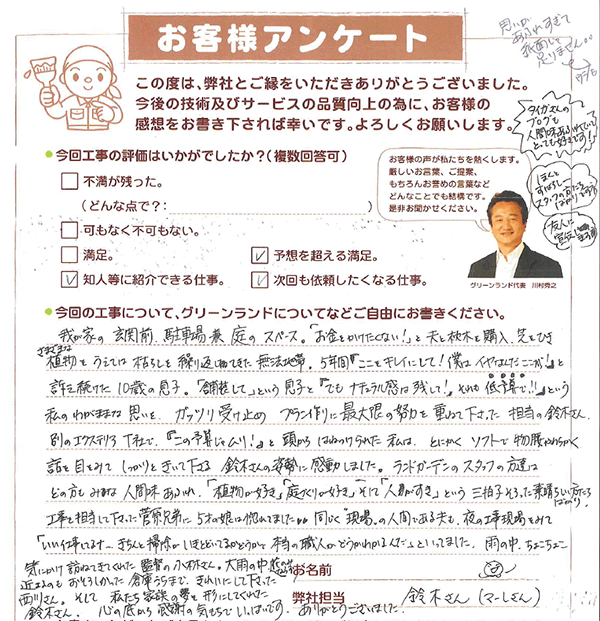 お客様アンケート
思いが
あふれすぎて
紙面が
足りません。。
この度は、弊社とご縁をいただきありがとうございました。
今後の技術及びサービスの品質向上の為に、お客様の
感想をお書き下されば幸いです。よろしくお願いします。
タイガさんの
ブログも
人間味あふれていて
とっても好きです!
ほんと
すばらしい
スタッフの方たち
ばかり
友人に
宣伝
今回工事の評価はいかがでしたか?(複数回答可)
不満が残った。
(どんな点で?:)
可もなく不可もない。
満足。
予想を超える満足。
知人等に紹介できる仕事。
次回も依頼したくなる仕事。
お客様の声が私たちを熱くします。
厳しいお言葉、ご提案、
もちろんお誉めの言葉など
どんなことでも結構です。
是非お聞かせください。
グリーンランド代表 川村秀之
今回の工事について、グリーンランドについてなどご自由にお書きください。
我が家の玄関前、駐車場兼庭のスペース。「お金をかけたくない!」と夫と枕木を購入、芝をひき
さまざまな
植物をうえては枯らしを繰り返してきた無法地帯。5年間「ここをキレイにして!僕はイヤなんだここが!」と
訴え続けた10歳の息子。「舗装して」という息子と「でもナチュラル感は残して!それも低予算で!!」という
私のわがままな思いを、ガッツリ受け止めプラン作りに最大限の努力を重ねて下さった担当の鈴木さん。
別のエクステリアT社で、「この予算じゃムリ!」と頭からはねつけられた私は、とにかくソフトで物腰やわらかく
話を目をみてしっかりときいて下さる鈴木さんの姿勢に感動しました。ランドガーデンのスタッフの方達は
どの方もみな人間味あふれ、「植物が好き」「庭づくりが好き」そして「人が好き」という三拍子そろった素晴らしい方たち
ばかり。
工事を担当して下さった菅原兄弟に5才の娘は惚れてました。同じく"現場"の人間である夫も、夜の工事現場をみて
「いい仕事してるす〜きちんと掃除がいきとどいてるかどうかで本当の職人かどうかわかるんだ」といってました。雨の中、ちょこちょこ
気にかけ訪ねてきてくれた監督の小林さん。大雨の中
倉庫うらまで、きれいにして下さった
西川さん。そして私たち家族の夢を形にしてくれた
鈴木さん。心の底から感謝の気もちでいっぱいです。ありがとうございました。
お名前
弊社担当 鈴木さん(マーしさん)